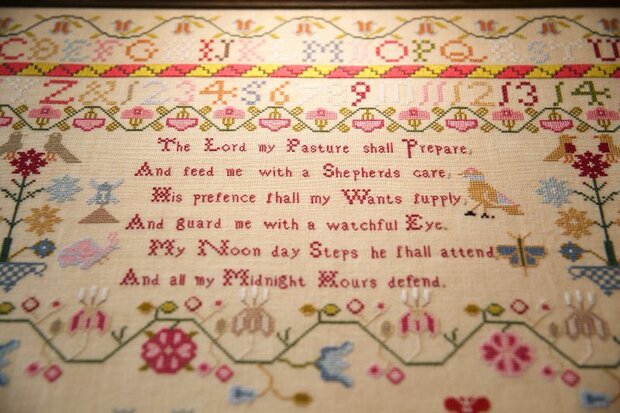 C D E F G H I K L M N O P Q R S T U
Z & 1 2 3 4 5 6 7 8 9 10 11 12 13 14
The Lord my Pasture shall Prepare,
And feed me with a Shepherds care,
His prefence fhall my Wants fupply,
And guard me with a watchful Eye.
My Noon day Steps he fhall attend
And all my Midnight Hours defend.